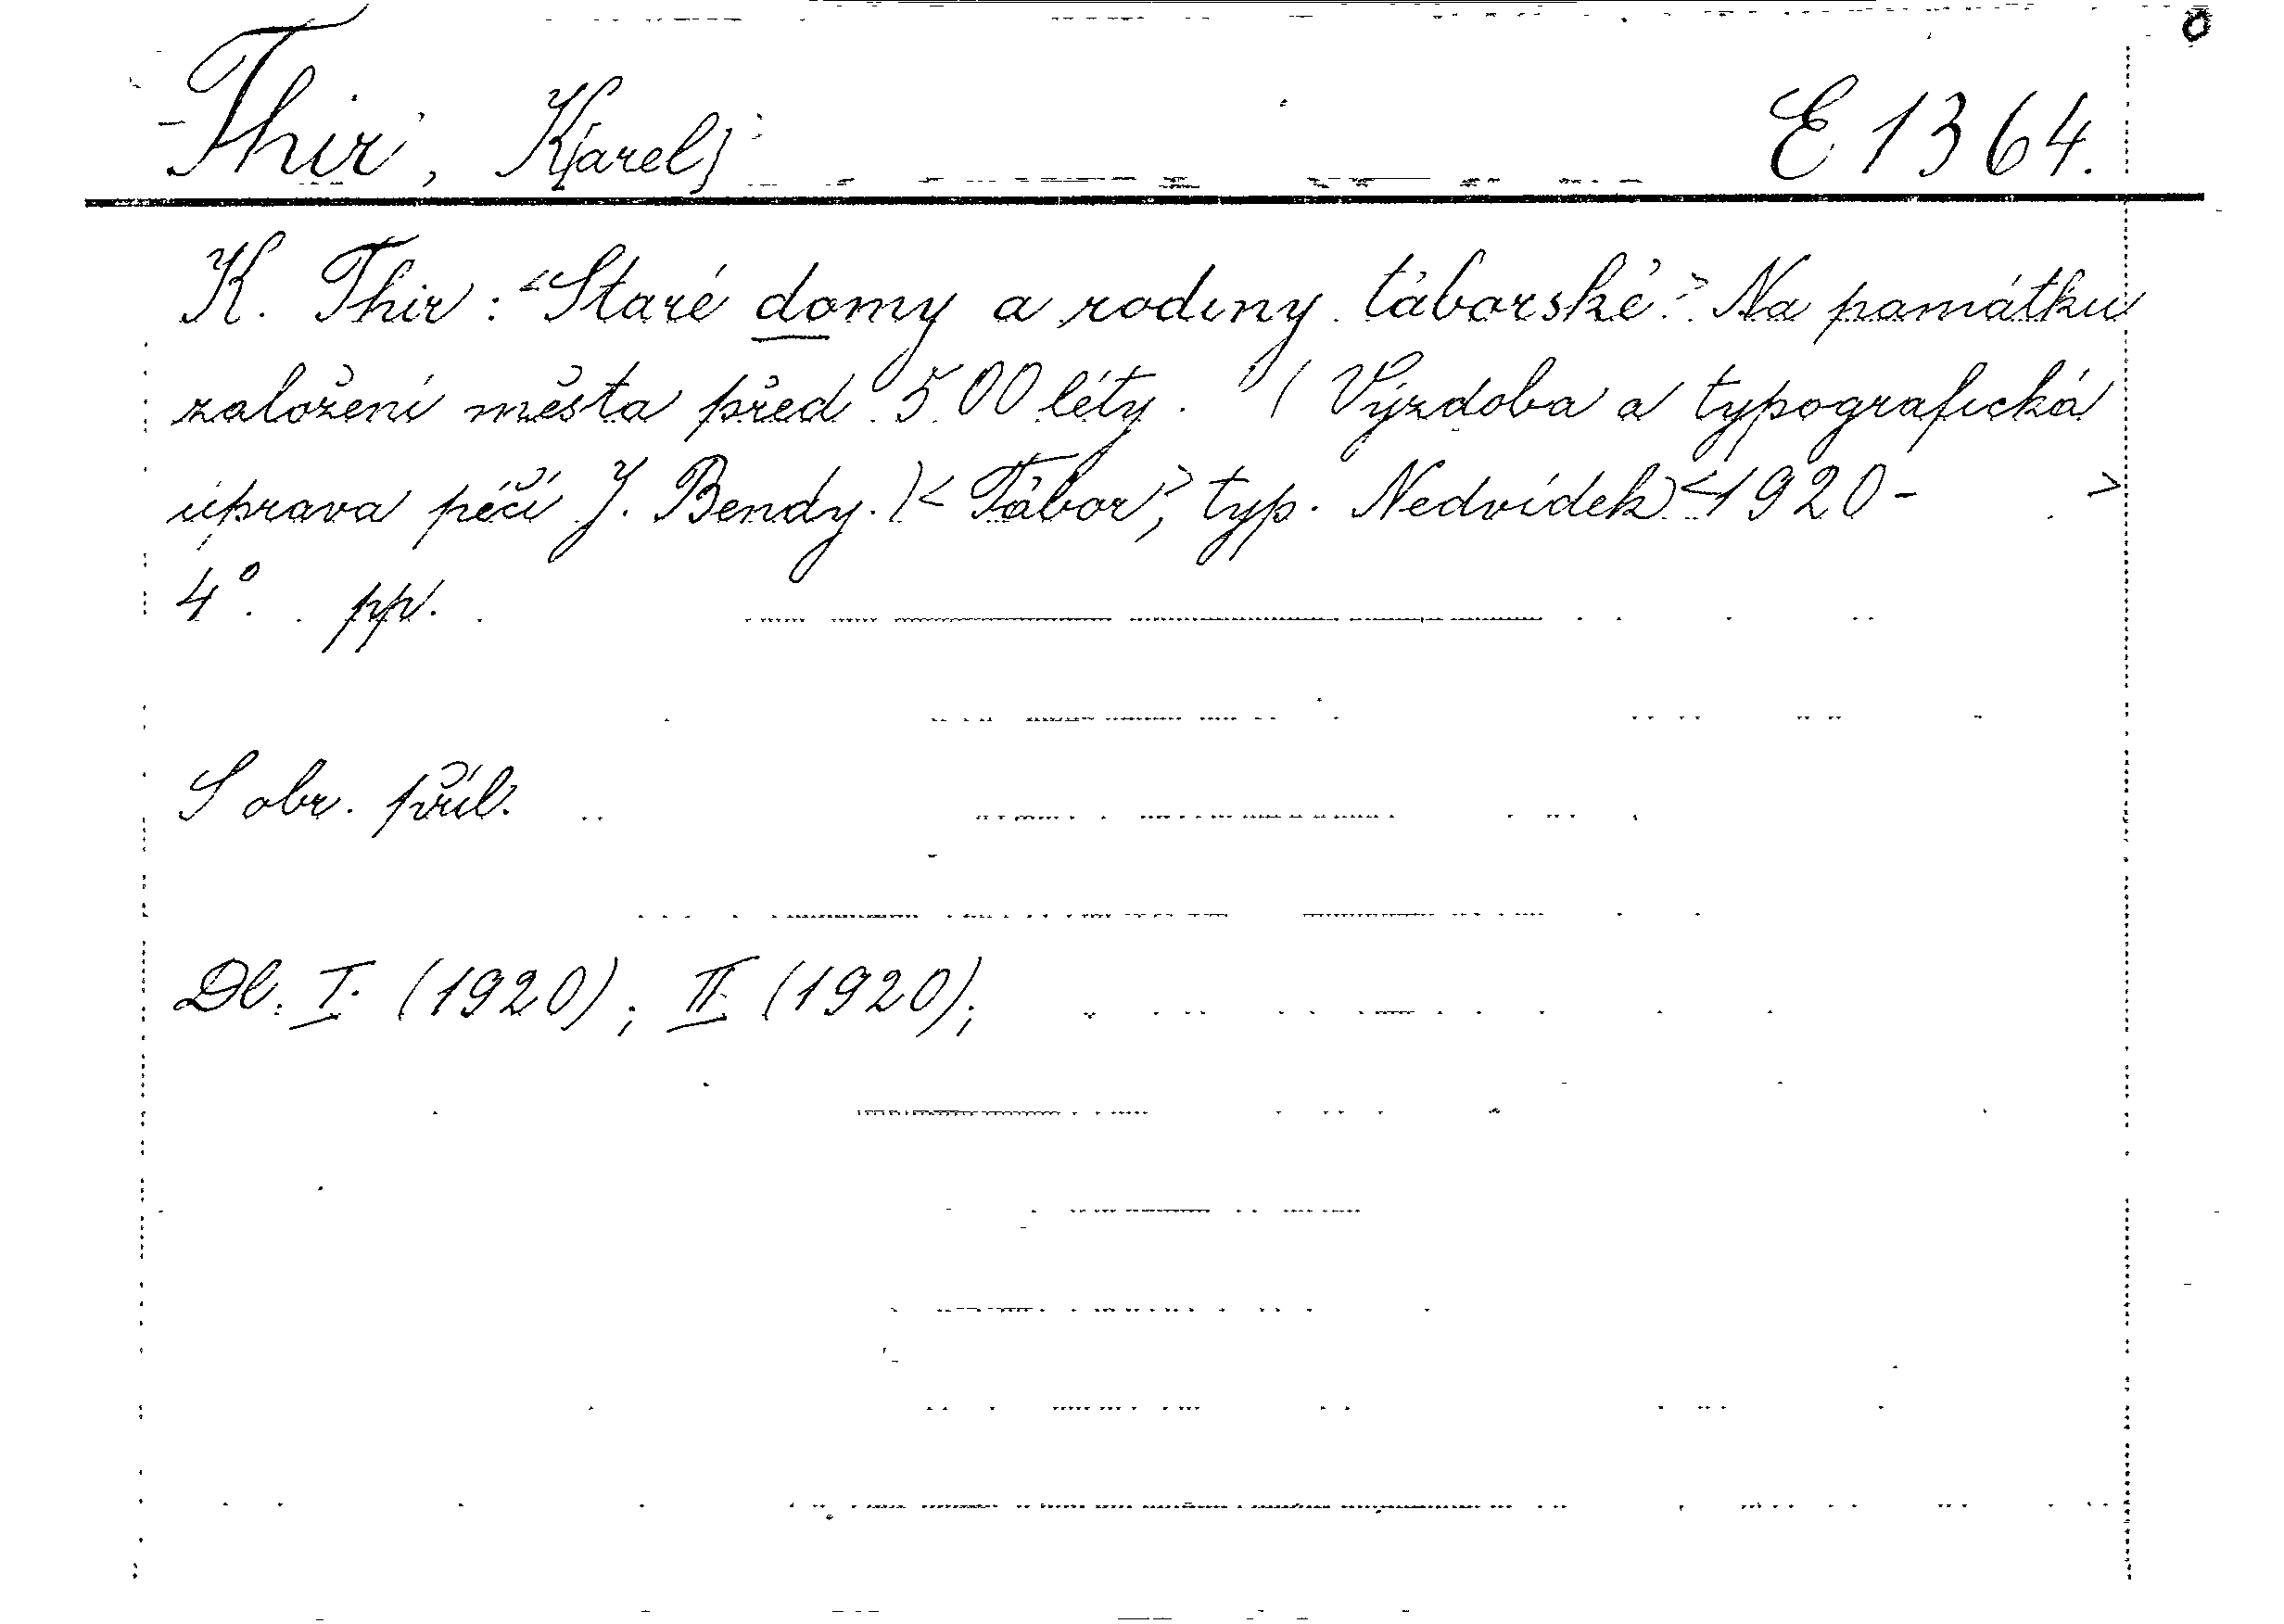 Thir, K[arel] E 1364.
K. Thir: <Staré domy a rodiny táborské.> Na památku
založení města před 500 léty. (Výzdoba a typografická
úprava péčí J. Bendy.) <Tábor,> typ. Nedvídek <1920- >
4°. pp.
S obr. příl.
Dl. I. (1920); II. (1920);